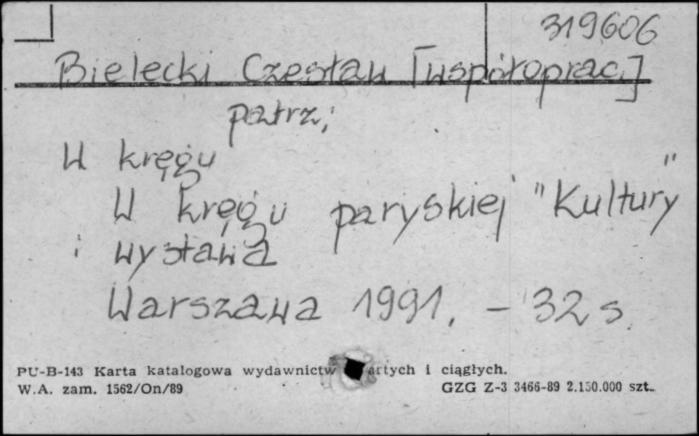 319606
Bielecki Czesław [współoprac.]
patrz:
W kręgu
W kręgu paryskiej "Kultury"
: wystawa
Warszawa 1991. - 32 s.
PU-B-143 Karta katalogowa wydawnictw artych i ciągłych.
W.A. zam. 1562/On/89 GZG Z-3 3466-89 2.150.000 szt.